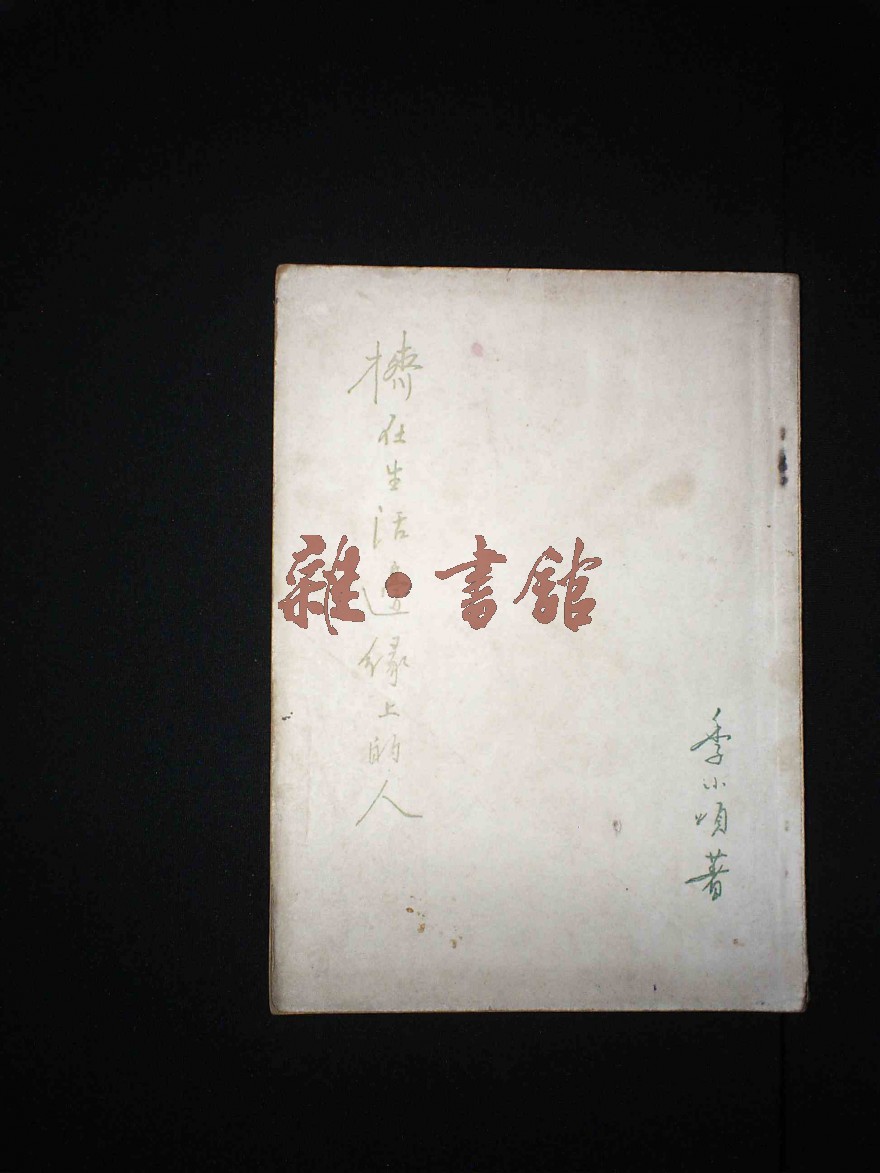 擠在生活邊緣上的人
雜•書館
季小著